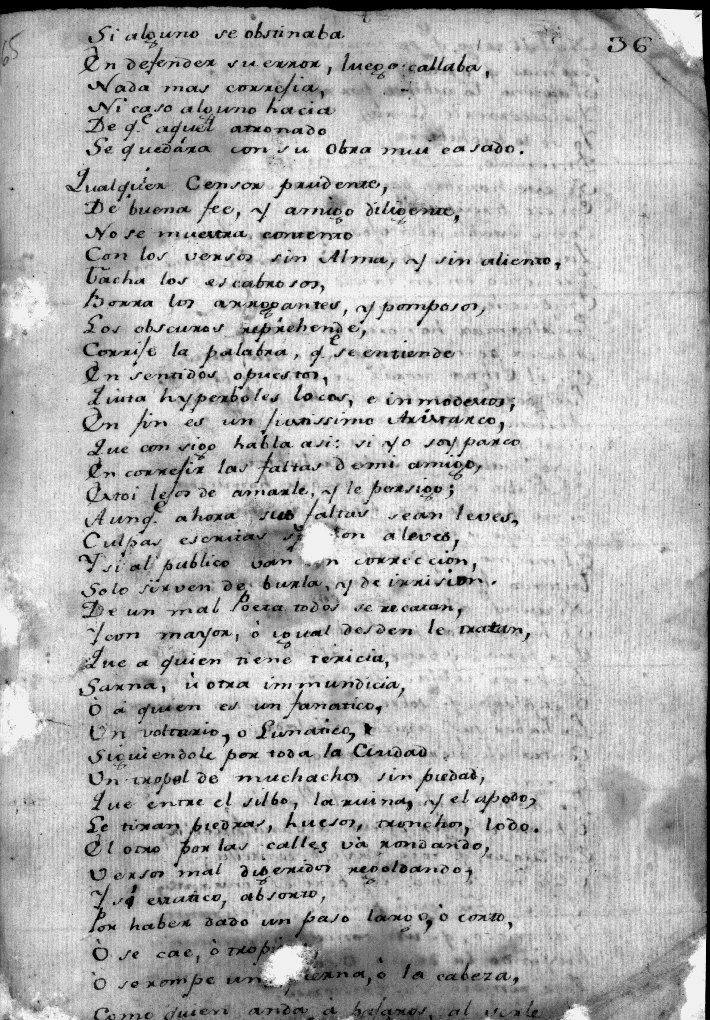 65
36
Si alguno se obstinaba
En defender su error, luego callaba,
Nada mas correjia,
Ni caso alguno hacia
De q.e aquel atronado
Se quedára con su Obra mui casado.
Qualquier Censor prudente,
De buena fee, y amigo diligente,
No se muestra contento
Con los versos sin Alma, y sin aliento,
Tacha los escabrosos,
Borra los arrogantes, y pomposos,
Los obscuros reprehende,
Corrije la palabra, q.e se entiende
En sentidos opuestos,
Quita hyperboles locos, e inmodestos;
En fin es un justissimo Aristarco,
Que consigo habla asi: si yo soy parco
En correjir las faltas de mi amigo,
Estoi lejos de amarle, y le persigo;
Aunq.e ahora sus faltas sean leves,
Culpas escritas son aleves,
Y si al publico van sin correccion,
Solo sirven de burla, y de irrision.
De un mal Poeta todos se recatan,
Y con mayor, ò igual desden le tratan,
Que a quien tiene tericia,
Sarna, ù otra immundicia,
Ò a quien es un fanatico,
Un voltario, o Lunatico,
Siguiendole por toda la Ciudad
Un tropel de muchachos sin piedad,
Que entre el silbo, la ruina, y el apodo,
Le tiran piedras, huesos, tronchos, lodo.
El otro por las calles và rondando,
Versos mal digeridos regoldando,
Y si erratico, absorto,
Por haber dado un paso largo, ò corto,
Ò se cae, ò
Ò se rompe una pierna, ò la cabeza,
Como quien anda à pajaros, al verle